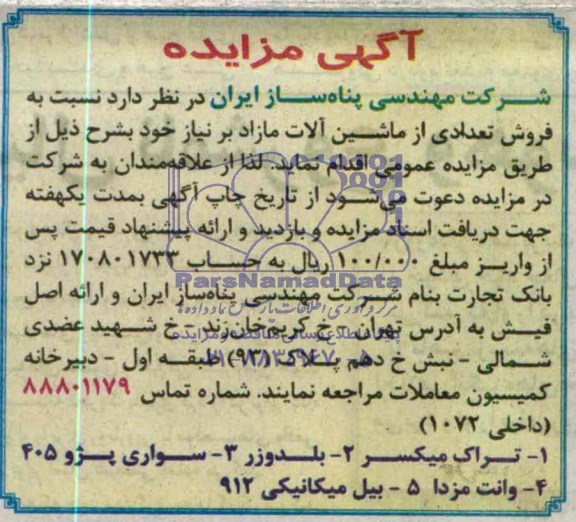 آگهی مزایده
شرکت مهندسی پناه‌ساز ایران در نظر دارد نسبت به
فروش تعدادی از ماشین آلات مازاد بر نیاز خود بشرح ذیل از
طریق مزایده عمومی اقدام نماید. لذا از علاقه‌مندان به شرکت
در مزایده دعوت می‌شود از تاریخ چاپ آگهی بمدت یکهفته
جهت دریافت اسناد مزایده و بازدید و ارائه پیشنهاد قیمت پس
از واریز مبلغ ۱۰۰/۰۰۰ ریال به حساب ۱۷۰۸۰۱۷۳۳ نزد
ParsNamadData
بانک تجارت بنام شرکت مهندسی پناه‌ساز ایران و ارائه اصل
فیش به آدرس تهران - خ کریم‌خان‌زند - خ شهید عضدی
شمالی - نبش خ دهم پلاک (۹۳) طبقه اول - دبیرخانه
کمیسیون معاملات مراجعه نمایند. شماره تماس ۸۸۸۰۱۱۷۹
(داخلی ۱۰۷۲)
۱- تراک میکسر ۲- بلدوزر ۳- سواری پژو ۴۰۵
۴- وانت مزدا ۵ - بیل میکانیکی ۹۱۲